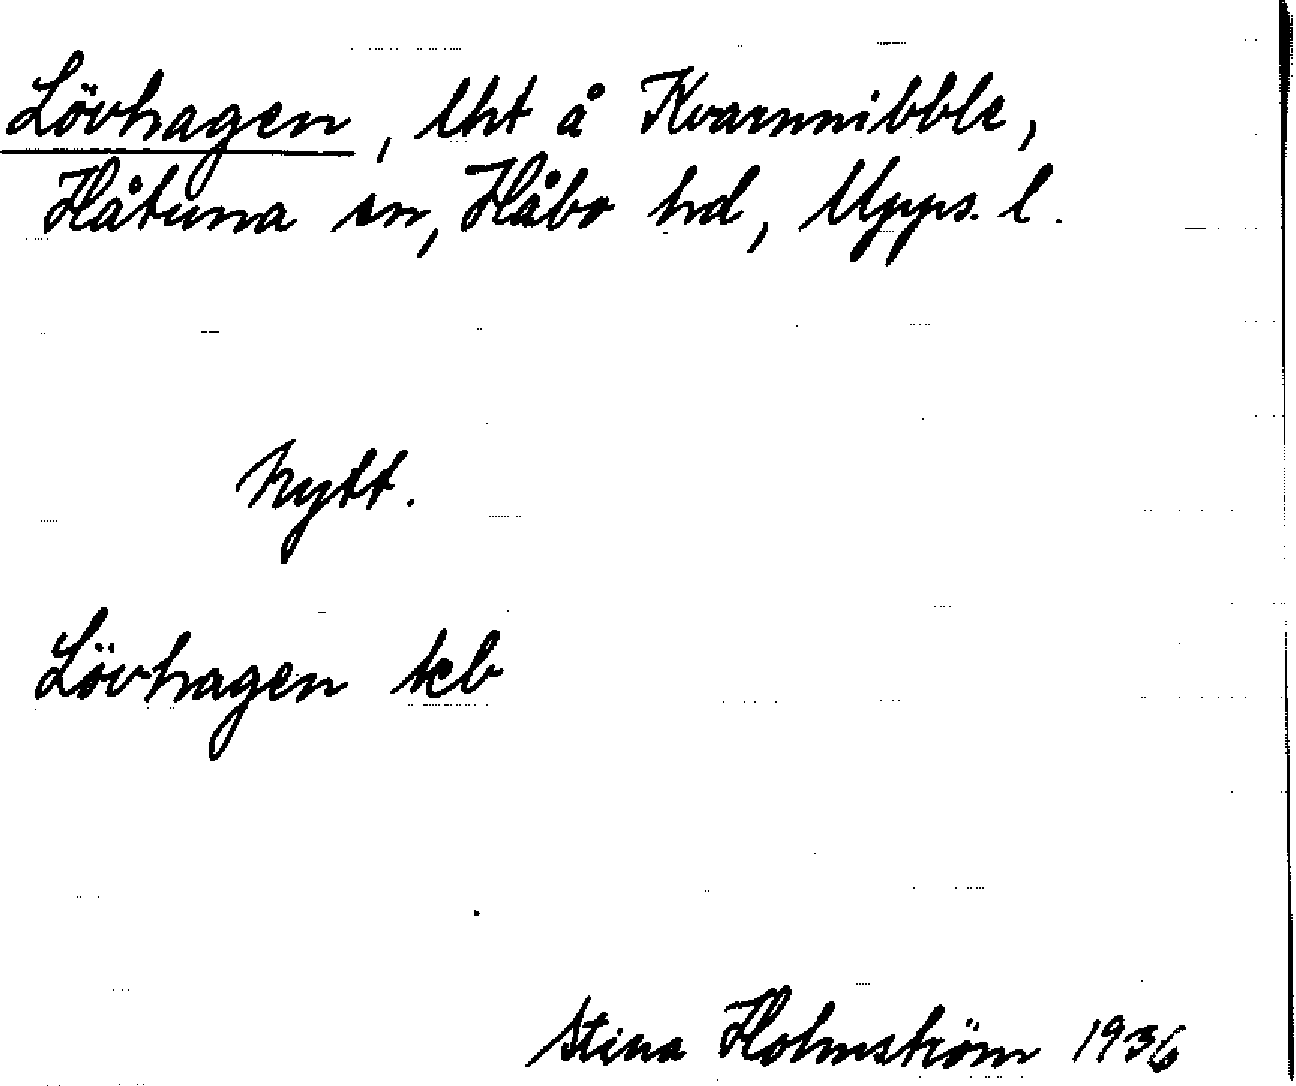 Lövhagen, lht å Kvarnnibble,
Håtuna sn, Håbo hd, Upps. l.
Nytt.
Lövhagen kb
Stina Holmström 1936